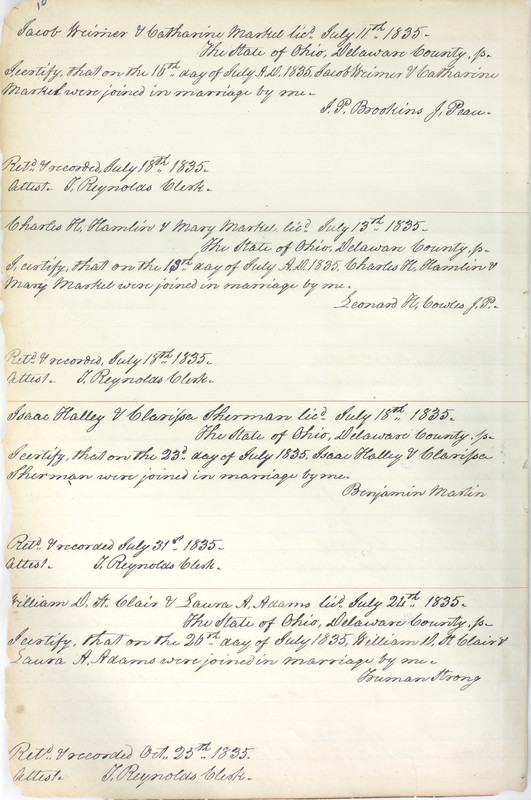 10
Jacob Weimer & Catharine Markel licd. July 11th 1835.
The State of Ohio, Delaware County, ss.
I certify, that on the 16th day of July A.D. 1835, Jacob Weimer & Catharine
Markel were joined in marriage by me.
I. P. Brookins J. Peau.
Retd. & recorded, July 18th 1835.
Attest. T. Reynolds Clerk.
Charles H. Hamlin & Mary Markel licd. July 13th 1835.
The State of Ohio, Delaware County, ss.
I certify, that on the 13th day of July A.D. 1835, Charles H. Hamlin &
Mary Markel were joined in marriage by me.
Leonard H. Cowles J.P.
Retd. & recorded, July 18th 1835.
Attest. T. Reynolds Clerk.
Isaac Halley & Clarissa Sherman licd. July 18th 1835.
The State of Ohio, Delaware County. ss.
I certify, that on the 23d. day of July 1835, Isaac Halley & Clarissa
Sherman were joined in marriage by me.
Benjamin Martin
Retd. & recorded July 31st 1835.
Attest. T. Reynolds Clerk.
William D. St. Clair & Laura A. Adams licd. July 24th 1835.
The State of Ohio, Delaware County. ss.
I certify, that on the 26th day of July 1835, William D. St. Clair &
Laura A. Adams were joined in marriage by me.
Truman Strong
Retd. & recorded Oct. 25th 1835.
Attest. T. Reynolds Clerk.